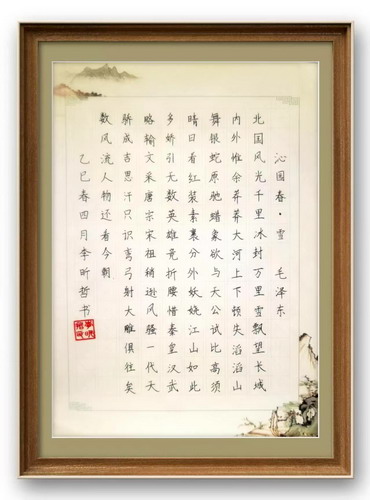 沁园春·雪 毛泽东
北国风光千里冰封万里雪飘望长城
内外惟余莽莽大河上下顿失滔滔山
舞银蛇原驰蜡象欲与天公试比高须
晴日看红装素裹分外妖娆江山如此
多娇引无数英雄竞折腰惜秦皇汉武
略输文采唐宗宋祖稍逊风骚一代天
骄成吉思汗只识弯弓射大雕俱往矣
数风流人物还看今朝
乙巳春四月李昕哲书